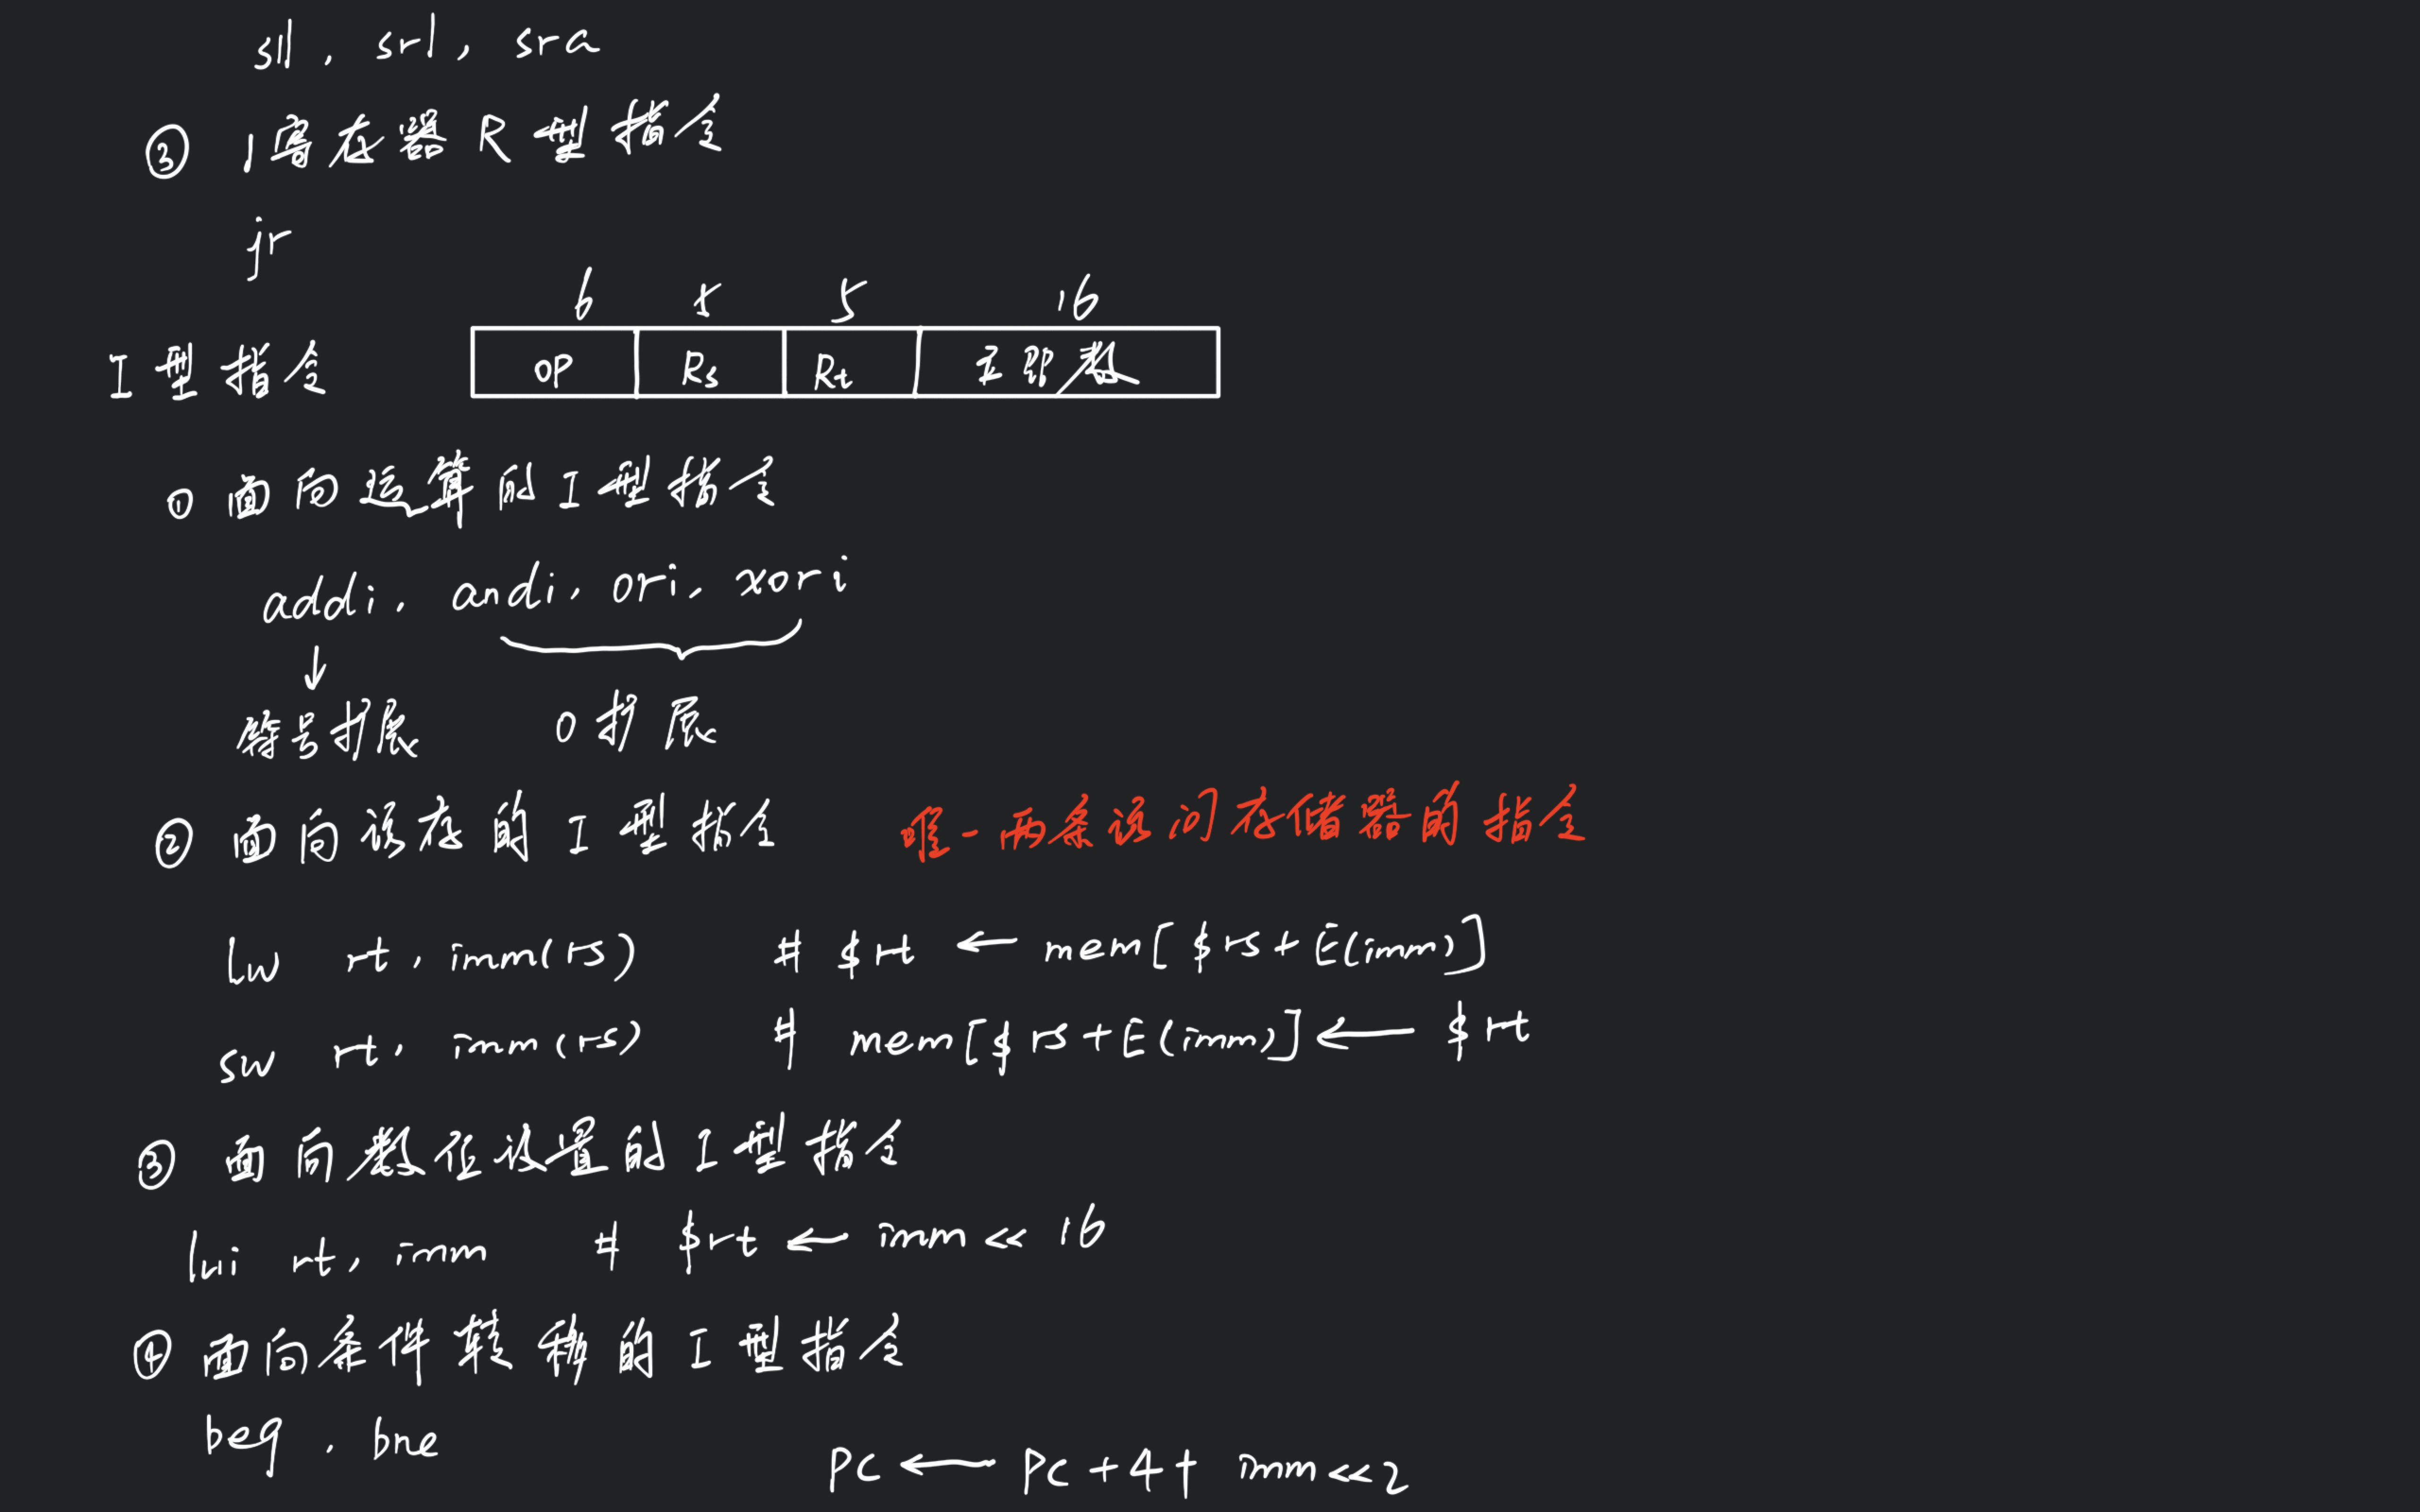 sll, srl, sra
③ 1寄存器R型指令
jr
6 5 5 16
I型指令 OP Rs Rt 立即数
① 面向运算的I型指令
addi, andi, ori, xori
符号扩展 0扩展
② 面向访存的I型指令 唯一两条访问存储器的指令
lw rt, imm(rs) # $rt ← mem[$rs+E(imm)]
sw rt, imm(rs) # mem[$rs+E(imm)] ← $rt
③ 面向数位设置的I型指令
lui rt, imm # $rt ← imm << 16
④ 面向条件转移的I型指令
beq, bne
PC ← PC+4+imm<<2